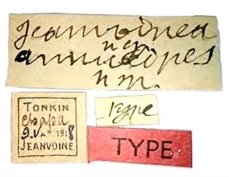 Jeanvoinea
n. g.
annulipes
n. sp.
TONKIN
Chapa
JEANVOINE
Type
TYPE